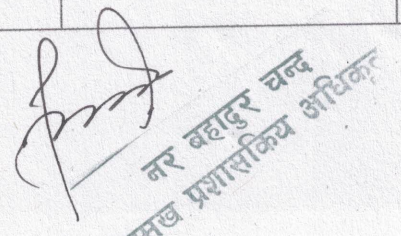 नर बहादुर चन्द
प्रशासकिय अधिकृत